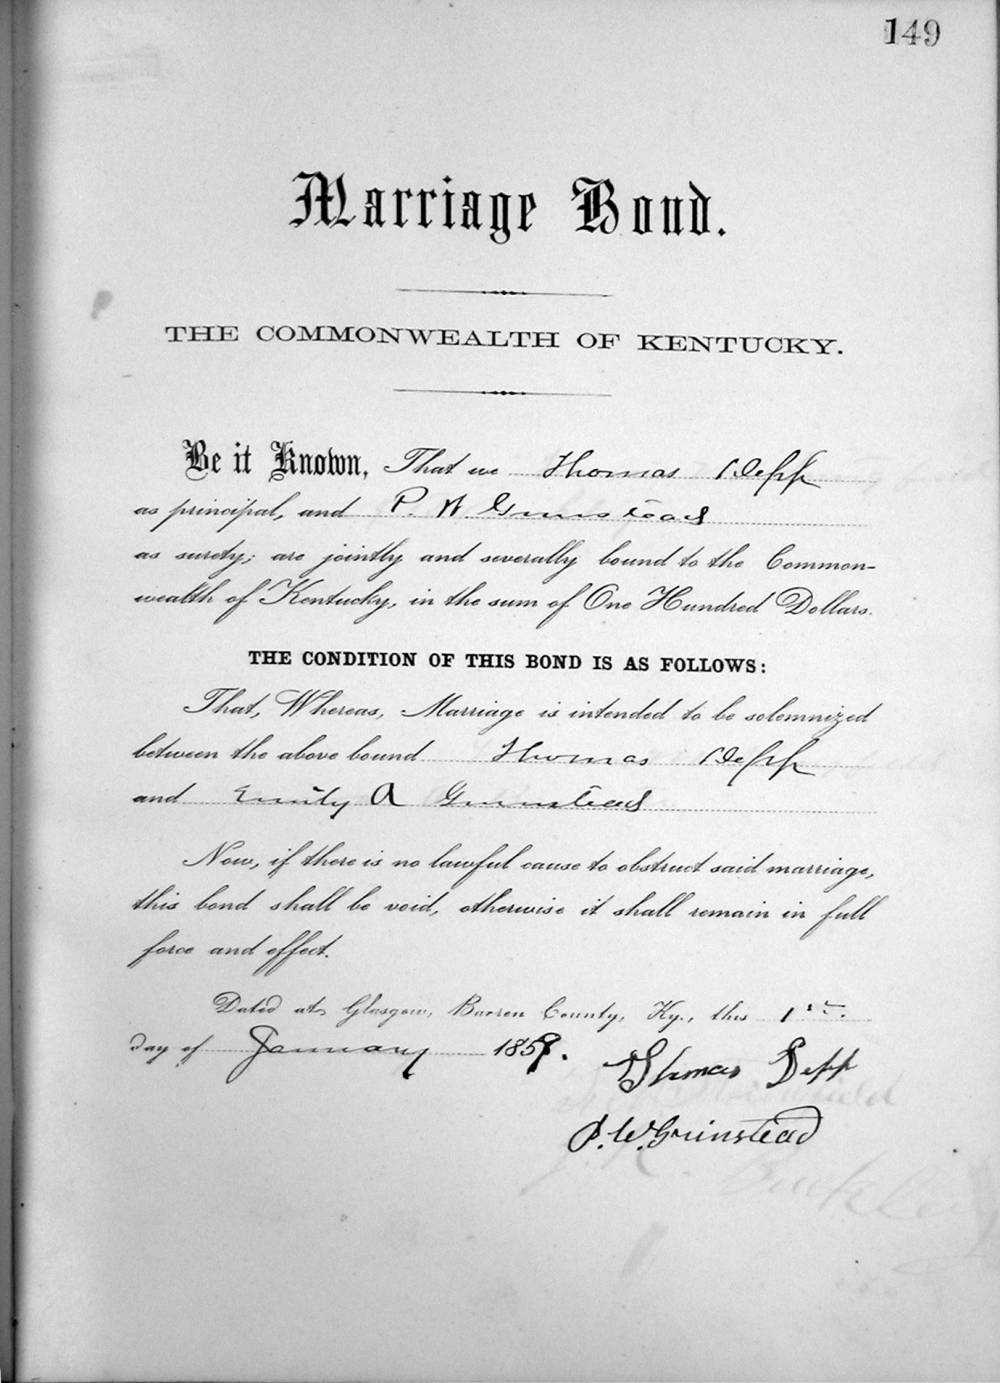 149
Marriage Bond.
THE COMMONWEALTH OF KENTUCKY.
Be it Known, That we Thomas Depp
as principal, and P. W Grinstead
as surety; are jointly and severally bound to the Common-
wealth of Kentucky, in the sum of One Hundred Dollars.
THE CONDITION OF THIS BOND IS AS FOLLOWS:
That, Whereas, Marriage is intended to be solemnized
between the above bound Thomas Depp
and Emily A Grinstead
Now, if there is no lawful cause to obstruct said marriage,
this bond shall be void, otherwise it shall remain in full
force and effect.
Dated at Glasgow, Barren County, Ky., this 1st.
day of January
Thomas Depp
P. W. Grinstead